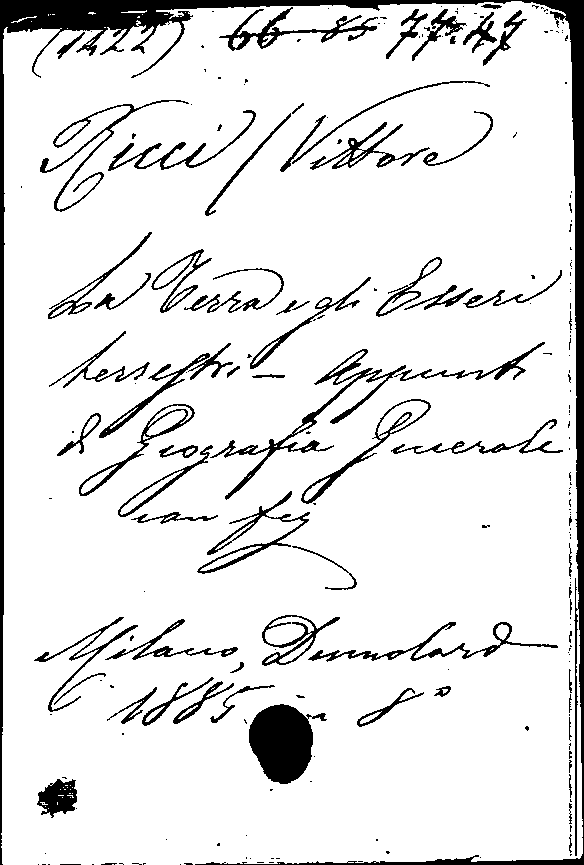 (1422). 66. 85 77. 47
Ricci / Vittore
La Terra e gli Esseri
terrestri - Appunti
di Geografia Generale
con fig
Milano, Dumolard
1885 in 8°